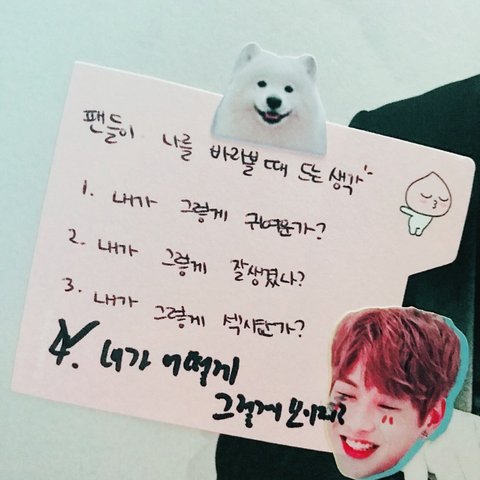 팬들이 나를 바라볼 때 드는 생각
1. 내가 그렇게 귀여운가?
2. 내가 그렇게 잘생겼나?
3. 내가 그렇게 섹시한가?
4. 내가 어떻게
그렇게 보이지?